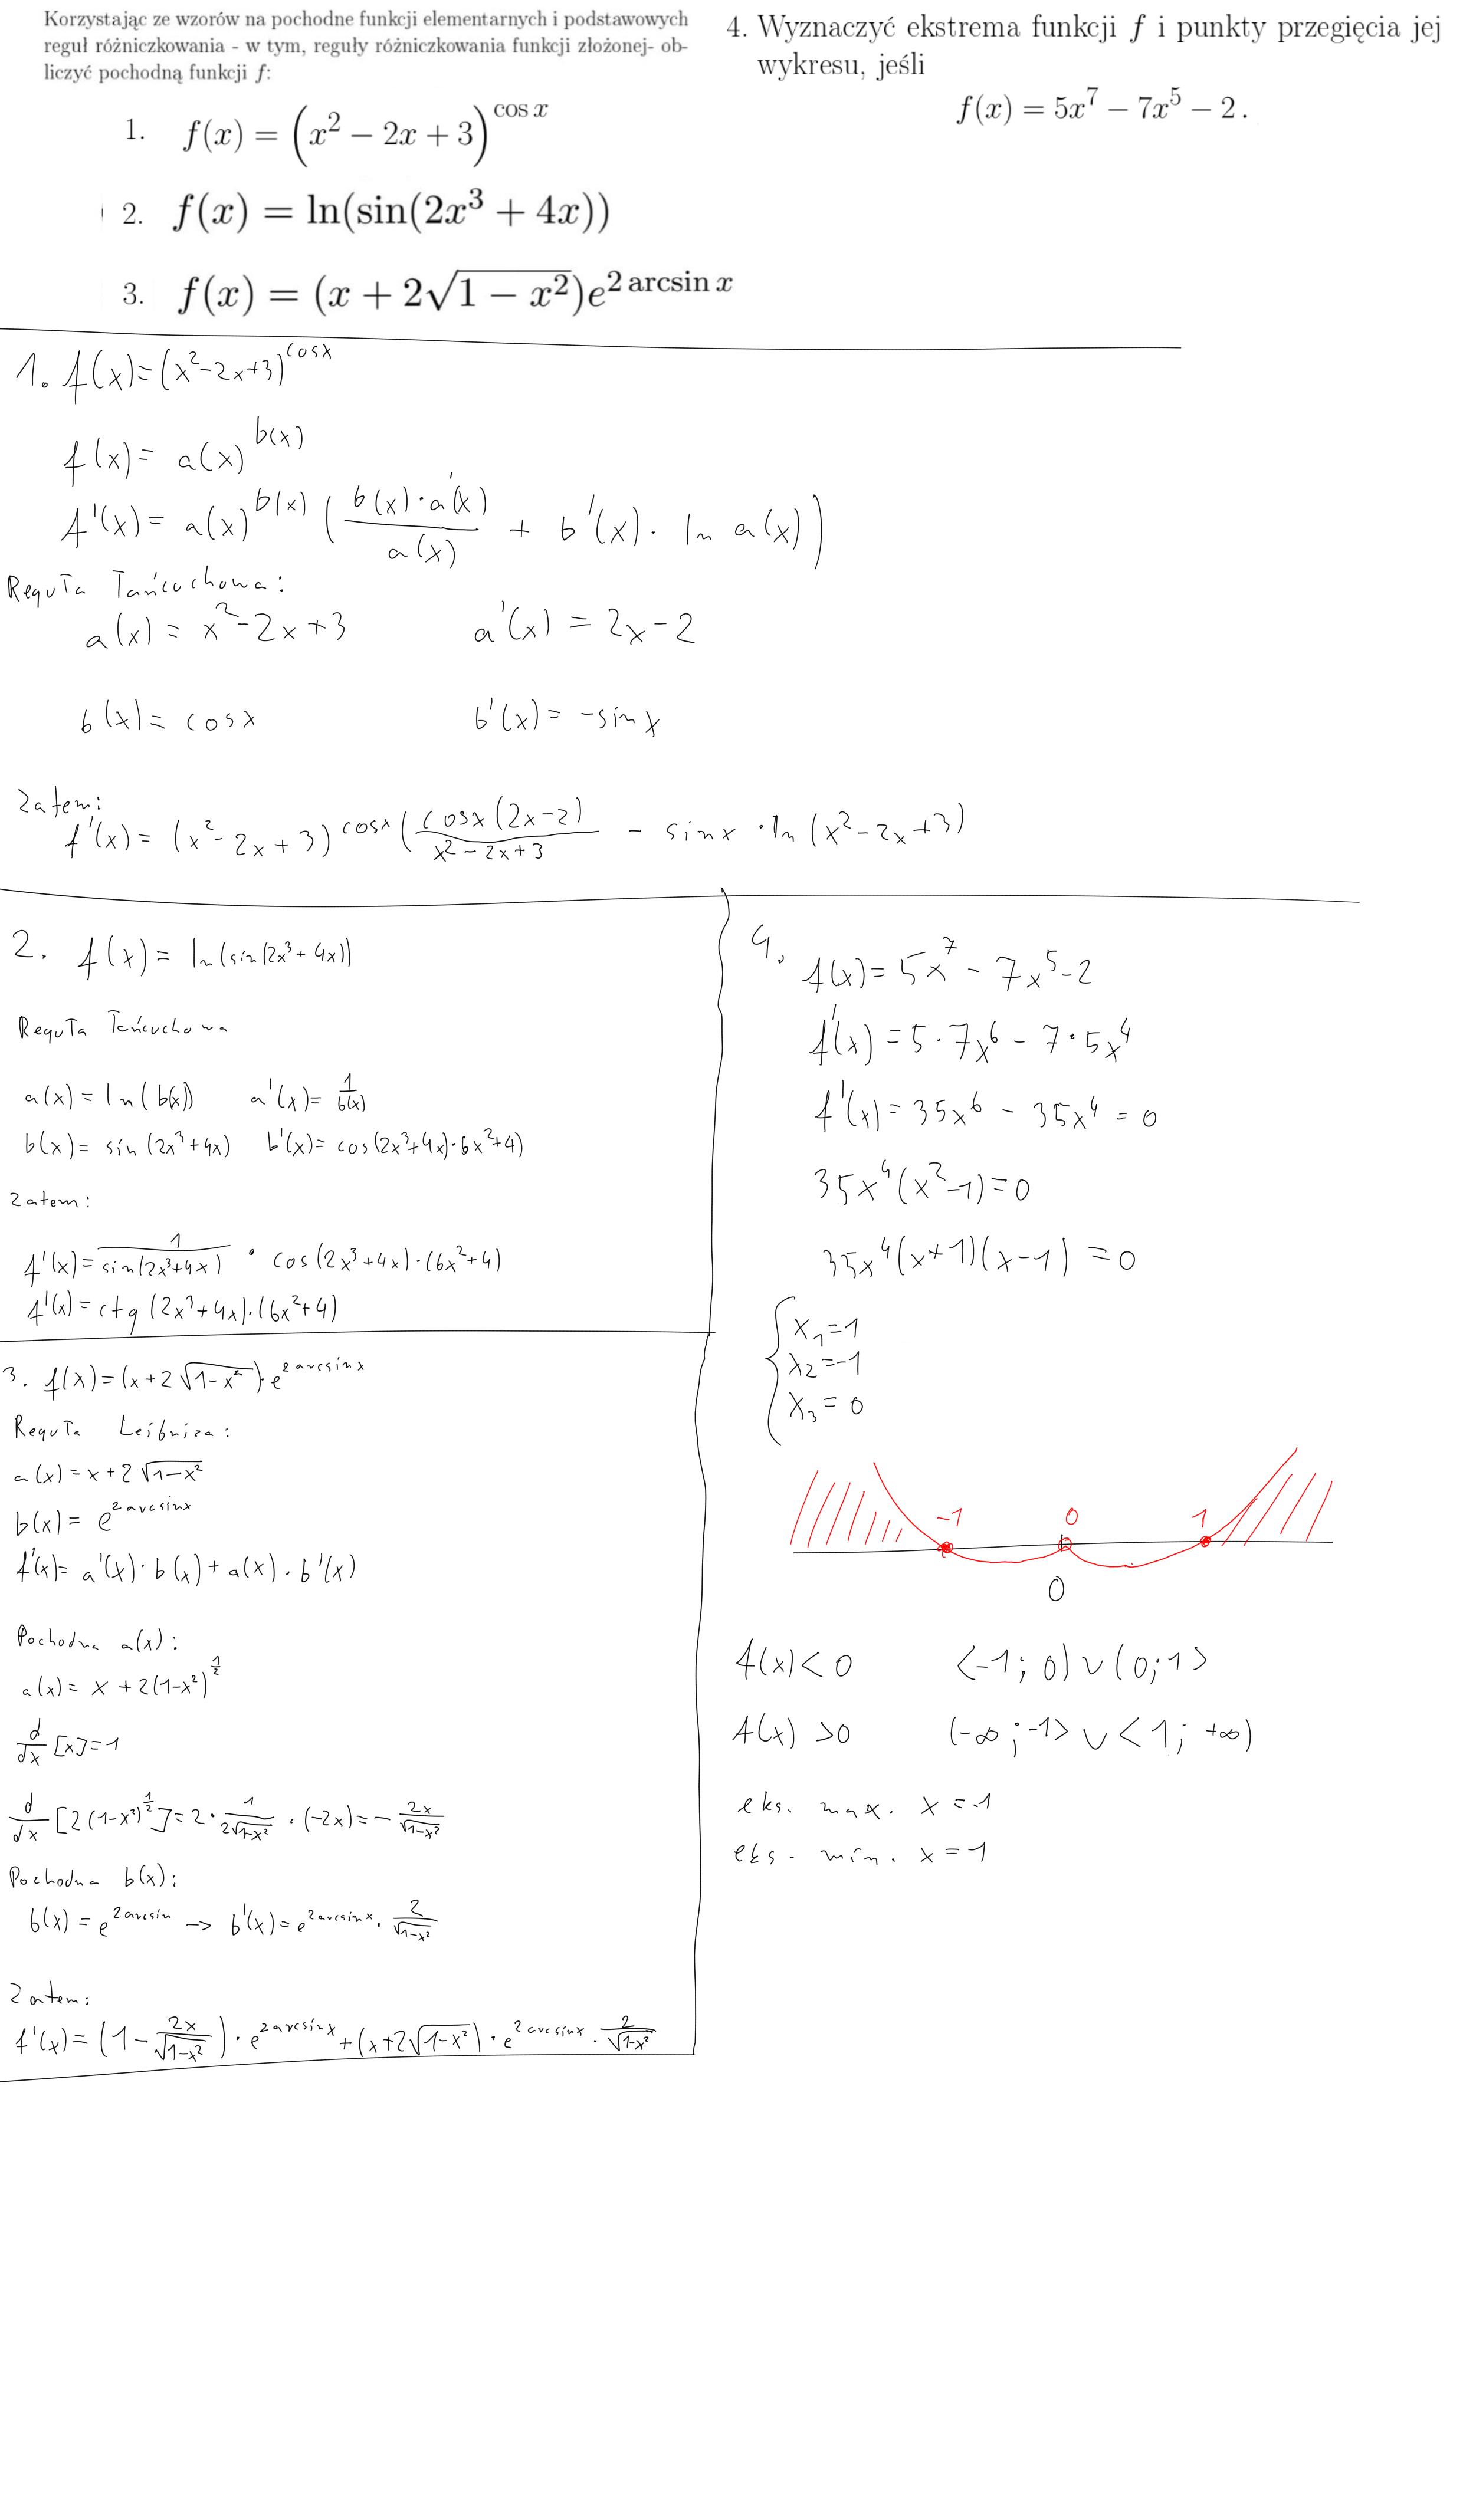 Korzystając ze wzorów na pochodne funkcji elementarnych i podstawowych
reguł różniczkowania - w tym, reguły różniczkowania funkcji złożonej- ob-
liczyć pochodną funkcji f:
1. f(x) = (x² − 2x + 3)^{cos x}
2. f(x) = ln(sin(2x³ + 4x))
3. f(x) = (x + 2√(1 − x²))e^{2 arcsin x}
4. Wyznaczyć ekstrema funkcji f i punkty przegięcia jej
wykresu, jeśli
f(x) = 5x⁷ − 7x⁵ − 2 .
1. f(x)=(x²-2x+3)^{cosx}
f(x)= a(x)^{b(x)}
f'(x)= a(x)^{b(x)} ( (b(x)·a'(x))/a(x) + b'(x)· ln a(x))
Reguła Łańcuchowa:
a(x) = x²-2x+3 a'(x) = 2x-2
b(x)= cosx b'(x)= -sin x
Zatem:
f'(x)= (x²-2x+3)^{cosx} ( (cosx(2x-2))/(x²-2x+3) - sinx · ln(x²-2x+3)
2. f(x)= ln(sin(2x³+4x))
Reguła Łańcuchowa
a(x)=ln(b(x)) a'(x)= 1/b(x)
b(x)= sin(2x³+4x) b'(x)= cos(2x³+4x)·6x²+4)
Zatem:
f'(x)= 1/sin(2x³+4x) · cos(2x³+4x)·(6x²+4)
f'(x)=ctg(2x³+4x)·(6x²+4)
3. f(x)=(x+2√(1-x²))·e^{2arcsinx}
Reguła Leibniza:
a(x)=x+2√(1-x²)
b(x)= e^{2arcsinx}
f'(x)= a'(x)·b(x)+a(x)·b'(x)
Pochodna a(x):
a(x)= x+2(1-x²)^{1/2}
d/dx [x]=1
d/dx [2(1-x²)^{1/2}]=2· 1/(2√(1-x²)) ·(-2x)=- 2x/√(1-x²)
Pochodna b(x):
b(x)=e^{2arcsin} -> b'(x)=e^{2arcsinx}· 2/√(1-x²)
Zatem:
f'(x)=(1- 2x/√(1-x²))·e^{2arcsinx}+(x+2√(1-x²))·e^{2arcsinx}· 2/√(1-x²)
4. f(x)=5x⁷-7x⁵-2
f'(x)=5·7x⁶-7·5x⁴
f'(x)=35x⁶-35x⁴=0
35x⁴(x²-1)=0
35x⁴(x+1)(x-1)=0
x₁=1
x₂=-1
x₃=0
-1 0 1
0
f(x)<0 <-1;0)∨(0;1>
f(x)>0 (-∞;-1>∨<1;+∞)
eks. max. x=-1
eks. min. x=1